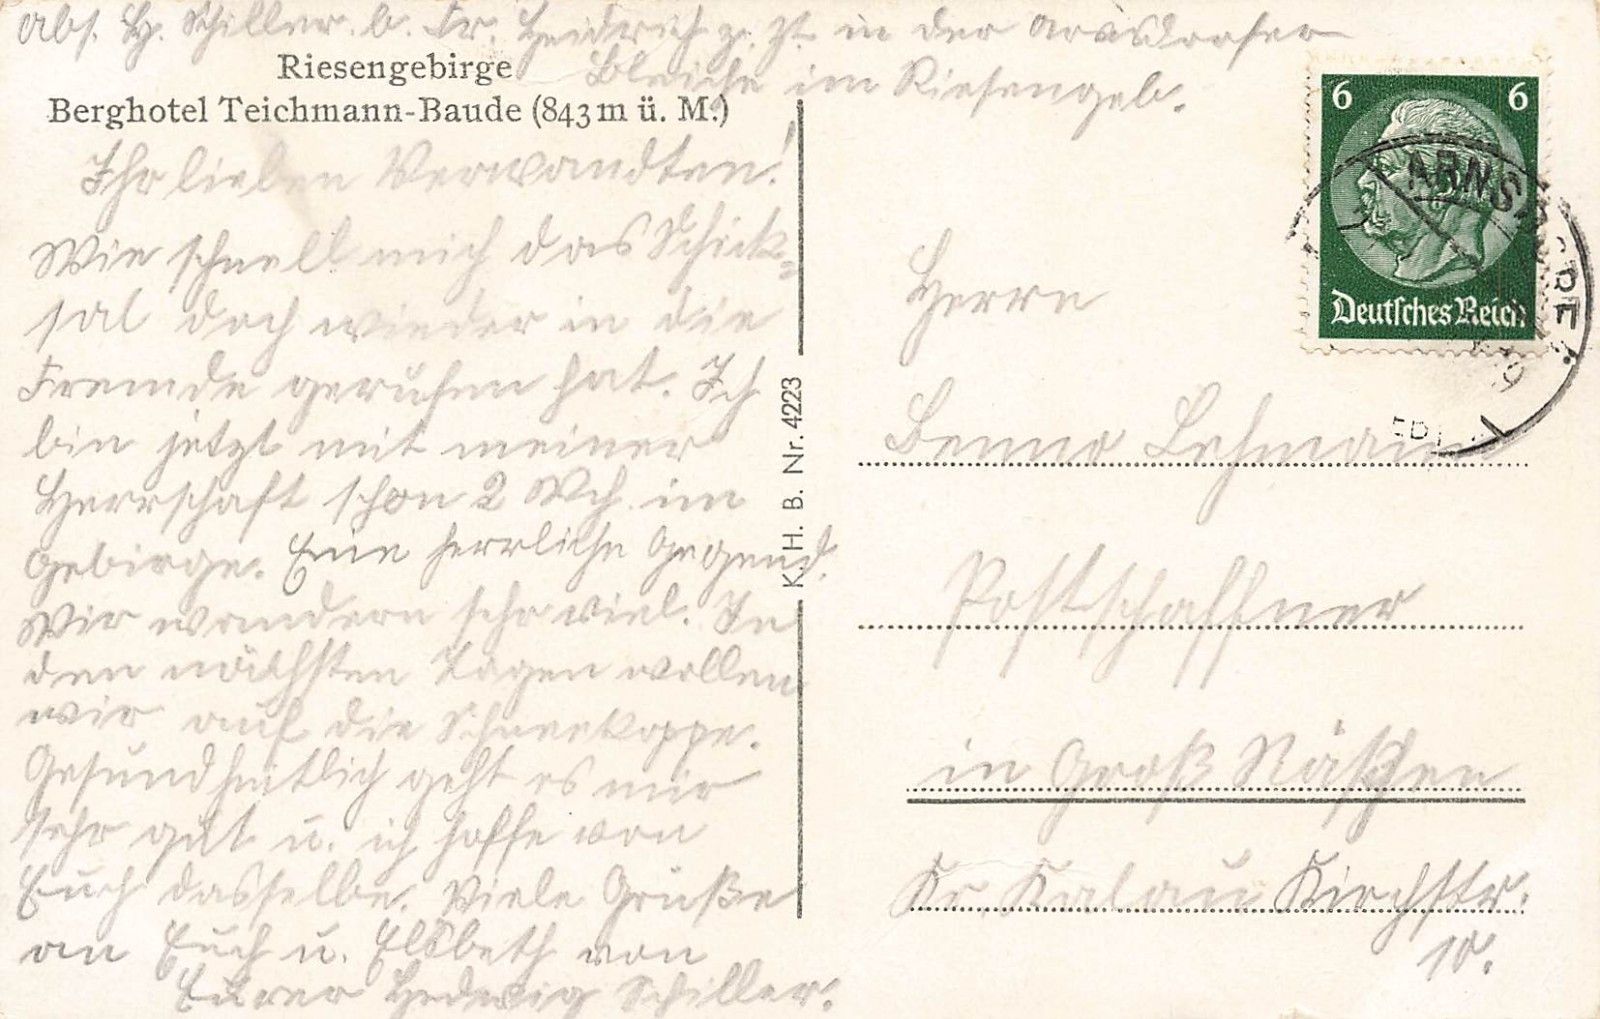 Abs. H. Schiller b. Fr. Heidrich z. Zt. in der Arnsdorfer
Bleiche im Riesengeb.
Riesengebirge
Berghotel Teichmann-Baude (843 m ü. M.)
Ihr lieben Verwandten!
Wie schnell mich das Schick-
sal doch wieder in die
Fremde gerufen hat. Ich
bin jetzt mit meiner
Herrschaft schon 2 Wch. im
Gebirge. Eine herrliche Gegend.
Wir wandern sehr viel. In
den nächsten Tagen wollen
wir auf die Schneekoppe.
Gesundheitlich geht es mir
sehr gut u. ich hoffe von
Euch dasselbe. Viele Grüße
an Euch u. Elsbeth von
Eurer Hedwig Schiller.
K. H. B. Nr. 4223
6 6
Deutsches Reich
ARNSDORF
Herrn
Benno Lehmann
Postschaffner
in Groß Räschen
Kr. Kalau Kirchstr.
10.